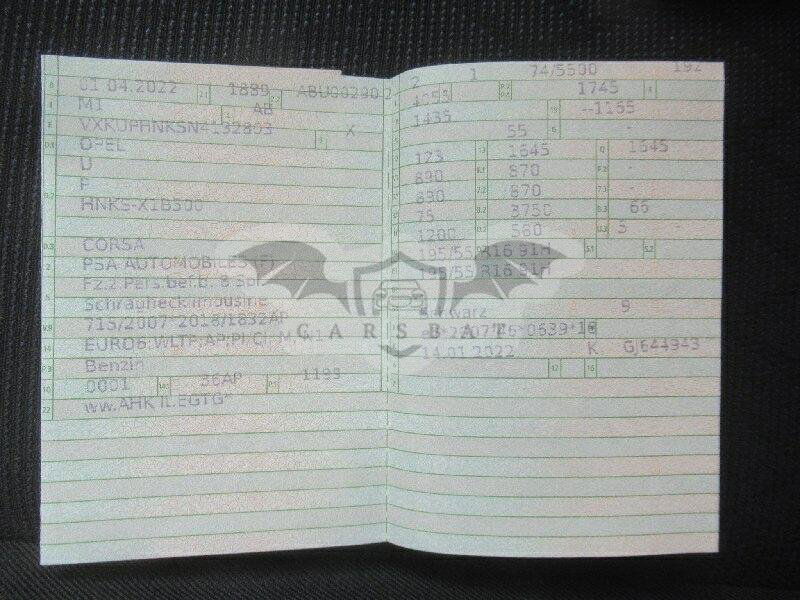 01.04.2022 1889 ABU00290
M1 AB
VXKUPHNKSN4132803 X
OPEL
U
P
HNKS-X1B500
CORSA
PSA AUTOMOBILES (F)
Fz.z.Pers.bef.b. 8 Spl.
Schräghecklimousine
715/2007*2018/1832AP
EURO6;WLTP,AP,PI,CI,M,
Benzin
0001 36AP 1199
ww.AHK lt.EGTG*
2 1 74/5500 192
4055 1745
1435 --1165
55 -
123 1645 Q 1645
890 870 -
890 870 -
75 3750 66
1200 580 3 -
195/55 R16 91H
195/55 R16 91H
schwarz 9
CARSBAT
14.01.2022 K GJ644943